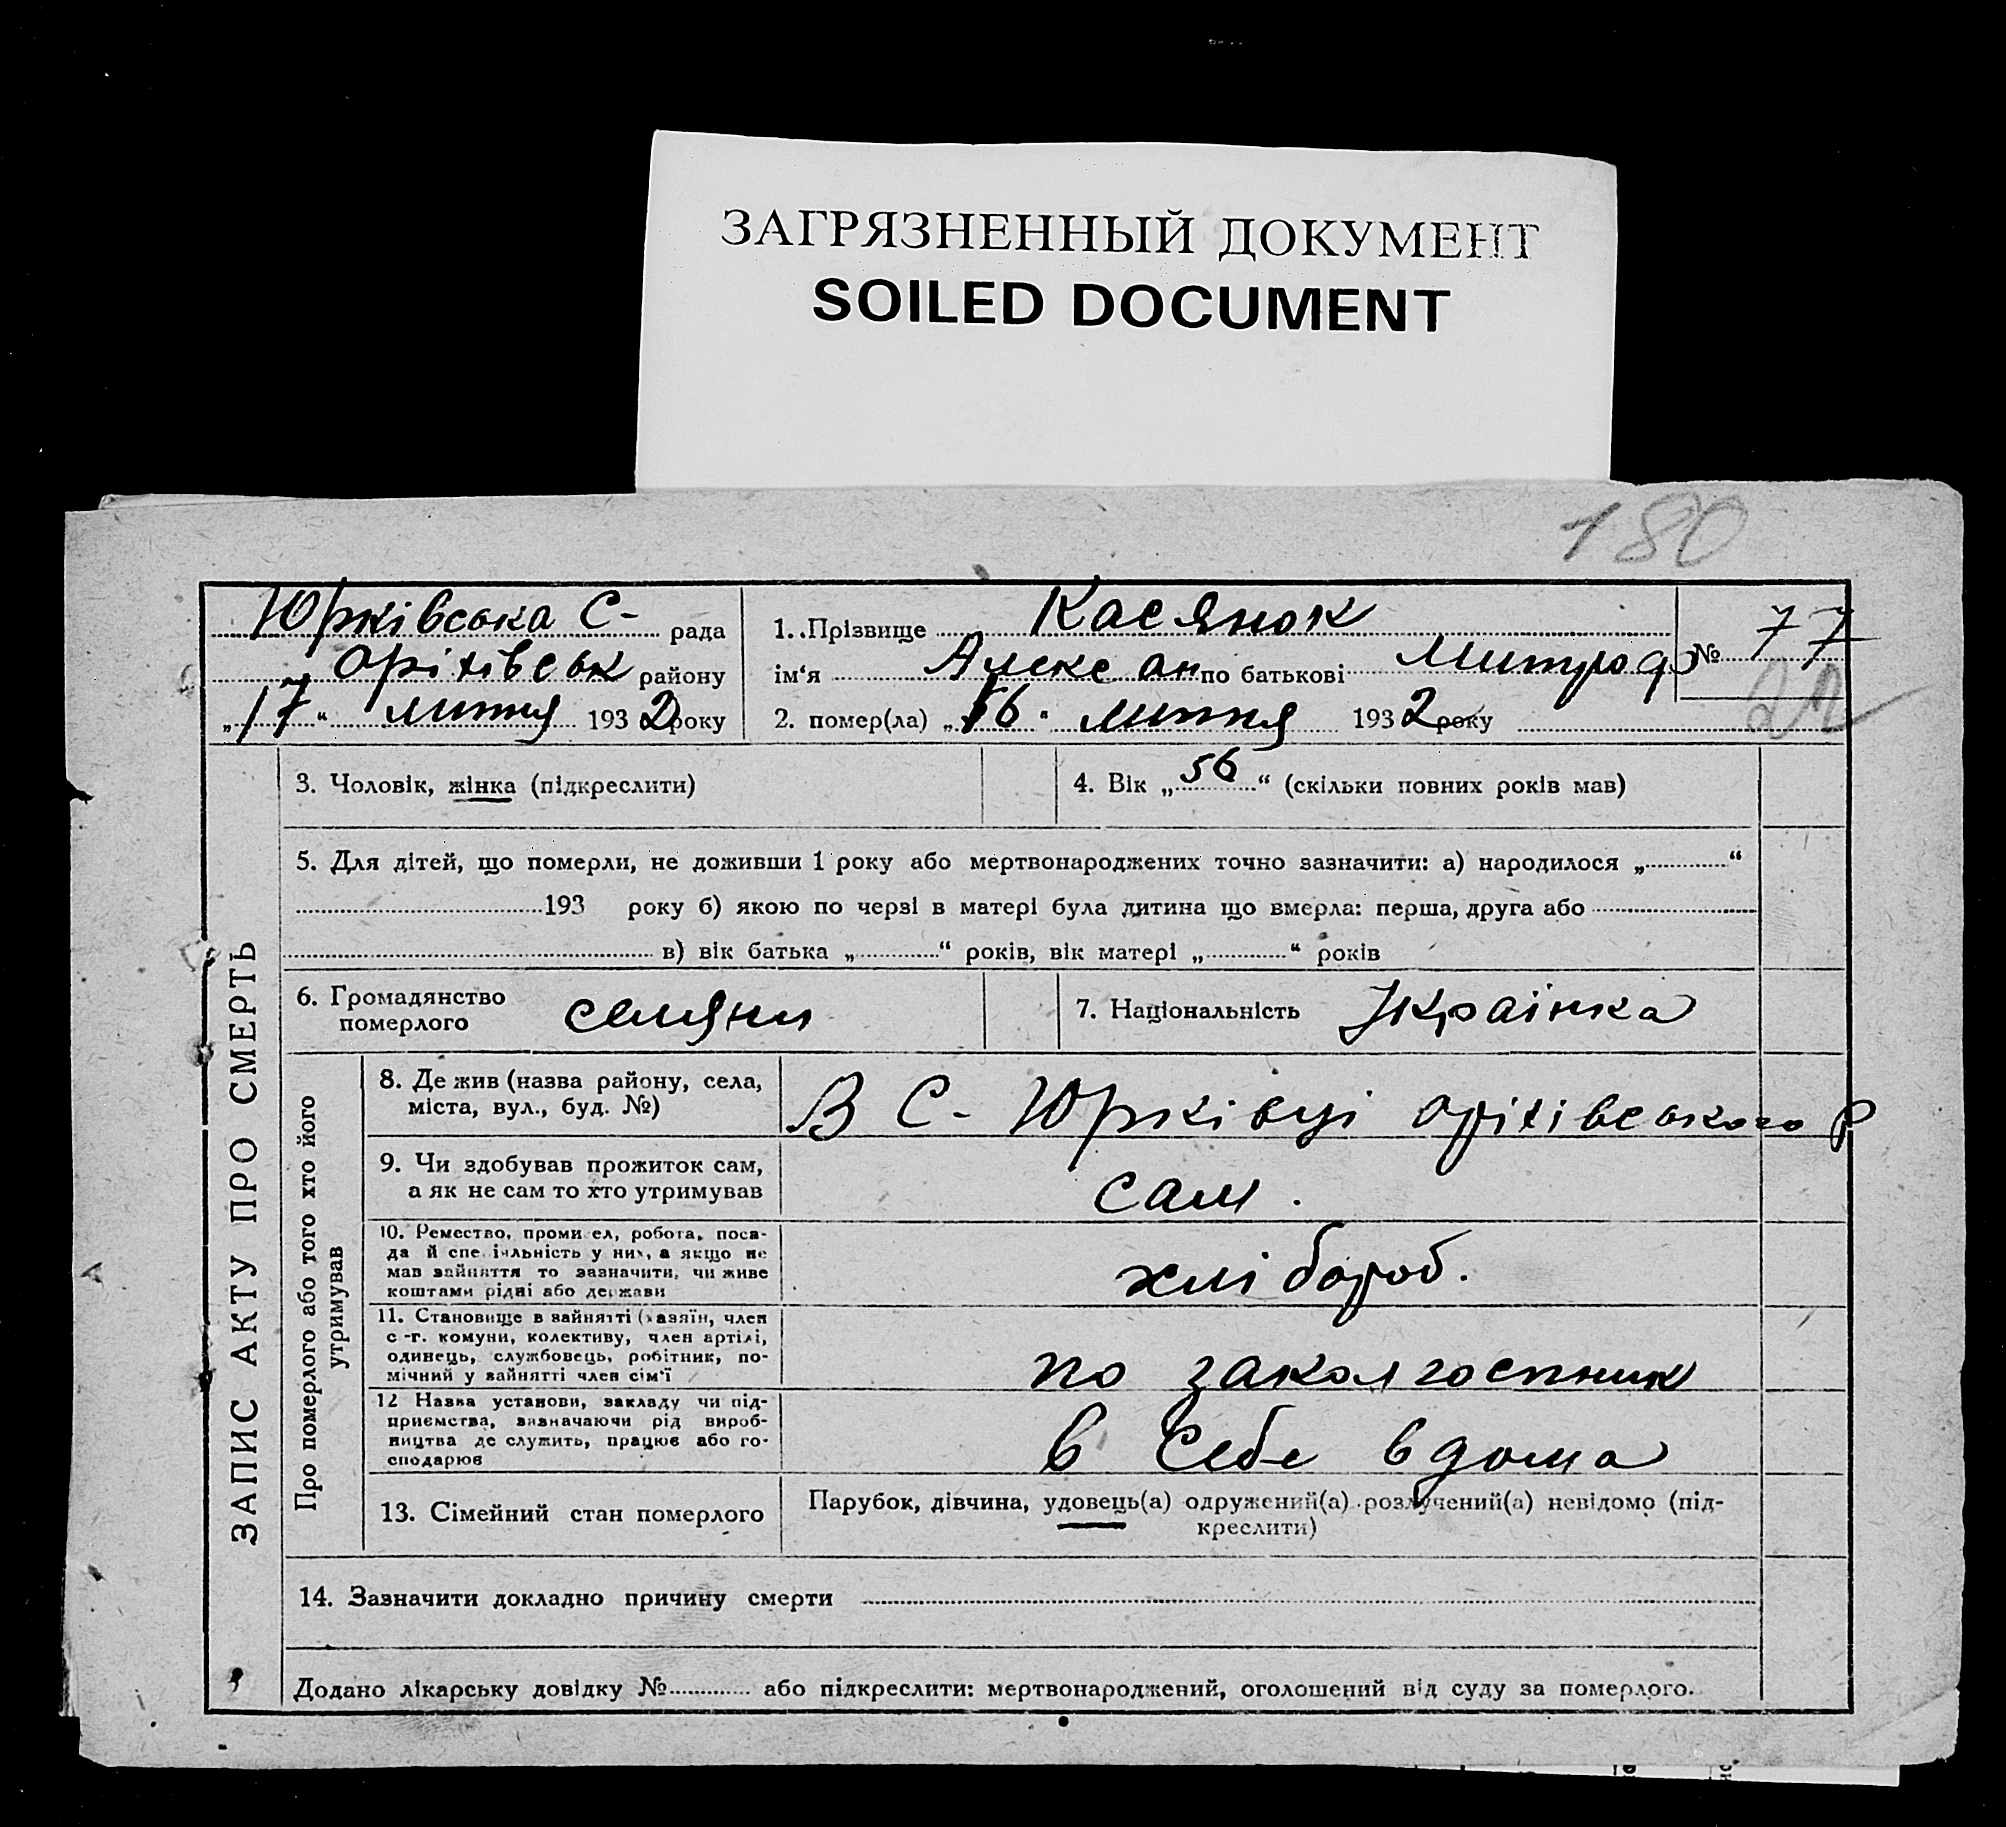 ЗАГРЯЗНЕННЫЙ ДОКУМЕНТ
SOILED DOCUMENT
180
Юрківська С- рада
Оріхівськ району
„17“ липня 1932 року
1. Прізвище Касянок
ім‘я Алексан по батькові Митроф
2. помер(ла) „16“ липня 1932 року
№ 77
22
ЗАПИС АКТУ ПРО СМЕРТЬ
3. Чоловік, жінка (підкреслити)
4. Вік „56“ (скільки повних років мав)
5. Для дітей, що померли, не доживши 1 року або мертвонароджених точно зазначити: а) народилося „ “
193 року б) якою по черзі в матері була дитина що вмерла: перша, друга або
в) вік батька „ “ років, вік матері „ “ років
6. Громадянство
померлого
селяни
7. Національність Українка
Про померлого або того хто його
утримував
8. Де жив (назва району, села,
міста, вул., буд. №)
В С- Юрківці Оріхівського р
9. Чи здобував прожиток сам,
а як не сам то хто утримував
сам.
10. Ремество, промисел, робота, поса-
да й спеціяльність у них, а якщо не
мав зайняття то зазначити, чи живе
коштами рідні або держави
хлібороб.
11. Становище в зайнятті (хазяїн, член
с.-г. комуни, колективу, член артілі,
одинець, службовець, робітник, по-
мічний у зайнятті член сім‘ї
по заколгоспник
12 Назва установи, закладу чи під-
приємства, визначаючи рід вироб-
ництва де служить, працює або го-
сподарює
в себе вдома
13. Сімейний стан померлого
Парубок, дівчина, удовець(а) одружений(а) розлучений(а) невідомо (під-
креслити)
14. Зазначити докладно причину смерти
Додано лікарську довідку № або підкреслити: мертвонароджений, оголошений від суду за померлого.